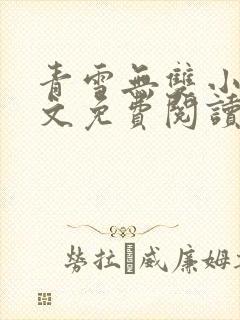 青雪無雙小
文免費閱讀
勞拉·威廉姆